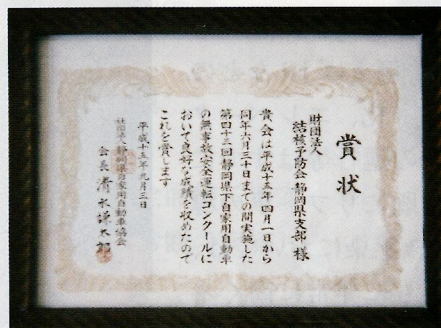 賞状
財団法人
結核予防会静岡県支部 様
貴会は平成十五年四月一日から
同年六月三十日までの間実施した
第四十三回静岡県下自家用自動車
の無事故安全運転コンクールに
おいて良好な成績を収めたので
これを賞します
平成十五年九月三日
社団法人静岡県自家用自動車協会
会長 清水謙太郎